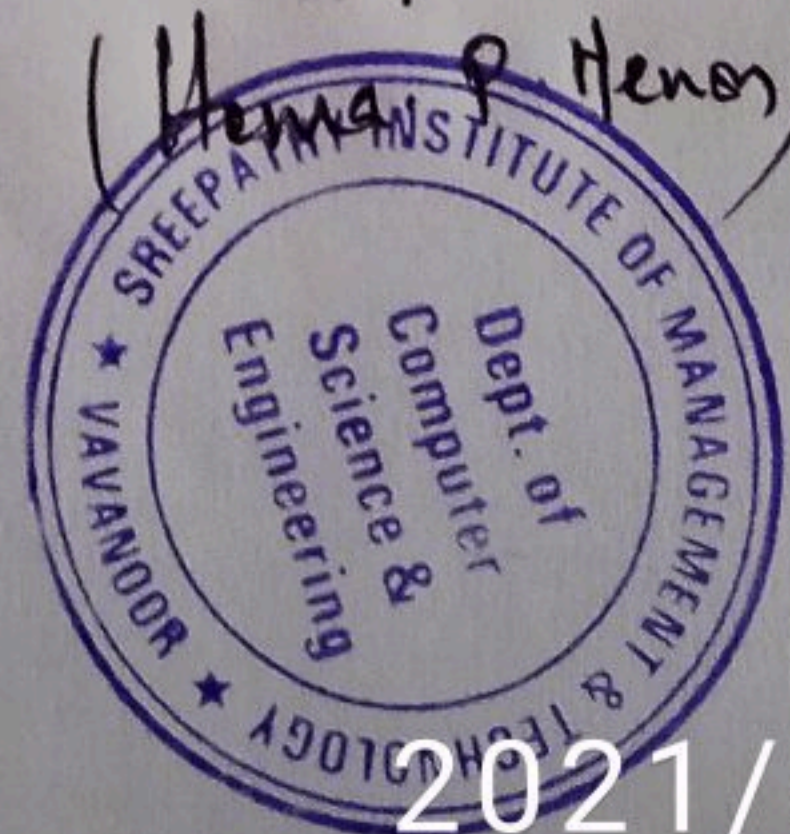 (Hema P. Menon)
SREEPATHY INSTITUTE OF MANAGEMENT & TECHNOLOGY
★ VAVANOOR ★
Dept. of
Computer
Science &
Engineering
2021/